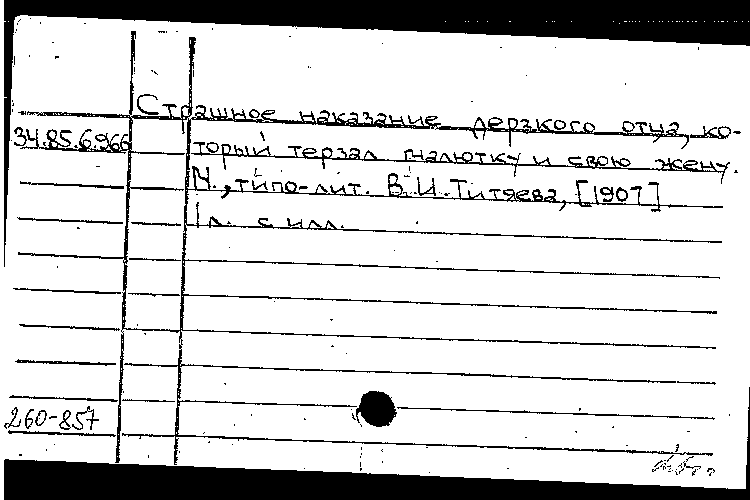 Страшное наказание дерзкого отца, ко-
34.85.6.966
торый терзал малютку и свою жену.
М., типо-лит. В.И. Титяева, [1907]
1 л. с илл.
260-857